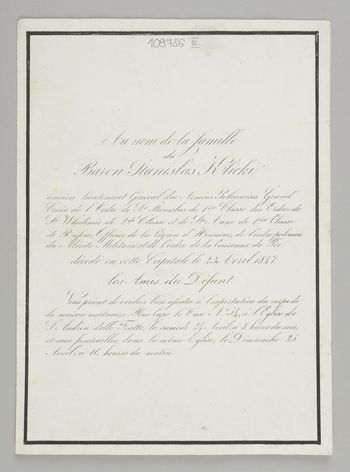 109786 III
Au nom de la famille
du
Baron Stanislas Klicki
ancien Lieutenant Général des Armées Polonaises Grand
Croix de l'Ordre de St Stanislas de 1re Classe des Ordres de
St Wladimir de 2de Classe et de Ste Anne de 1re Classe
de Russie, Officier de la Légion d'Honneur, de l'ordre polonais
du Mérite Militaire et de l'ordre de la Couronne de Fer
décédé en cette Capitale le 23 Avril 1847
les Amis du Défunt
Vous prient de vouloir bien assister à l'exportation du corps de
la maison mortuaire, Rue Capo le Case N. à l'Eglise de
St Andrea delle Fratte, le samedi 24 Avril à 8 heures du soir,
et aux funérailles dans la même Eglise, le Dimanche 25
Avril à 10 heures du matin.